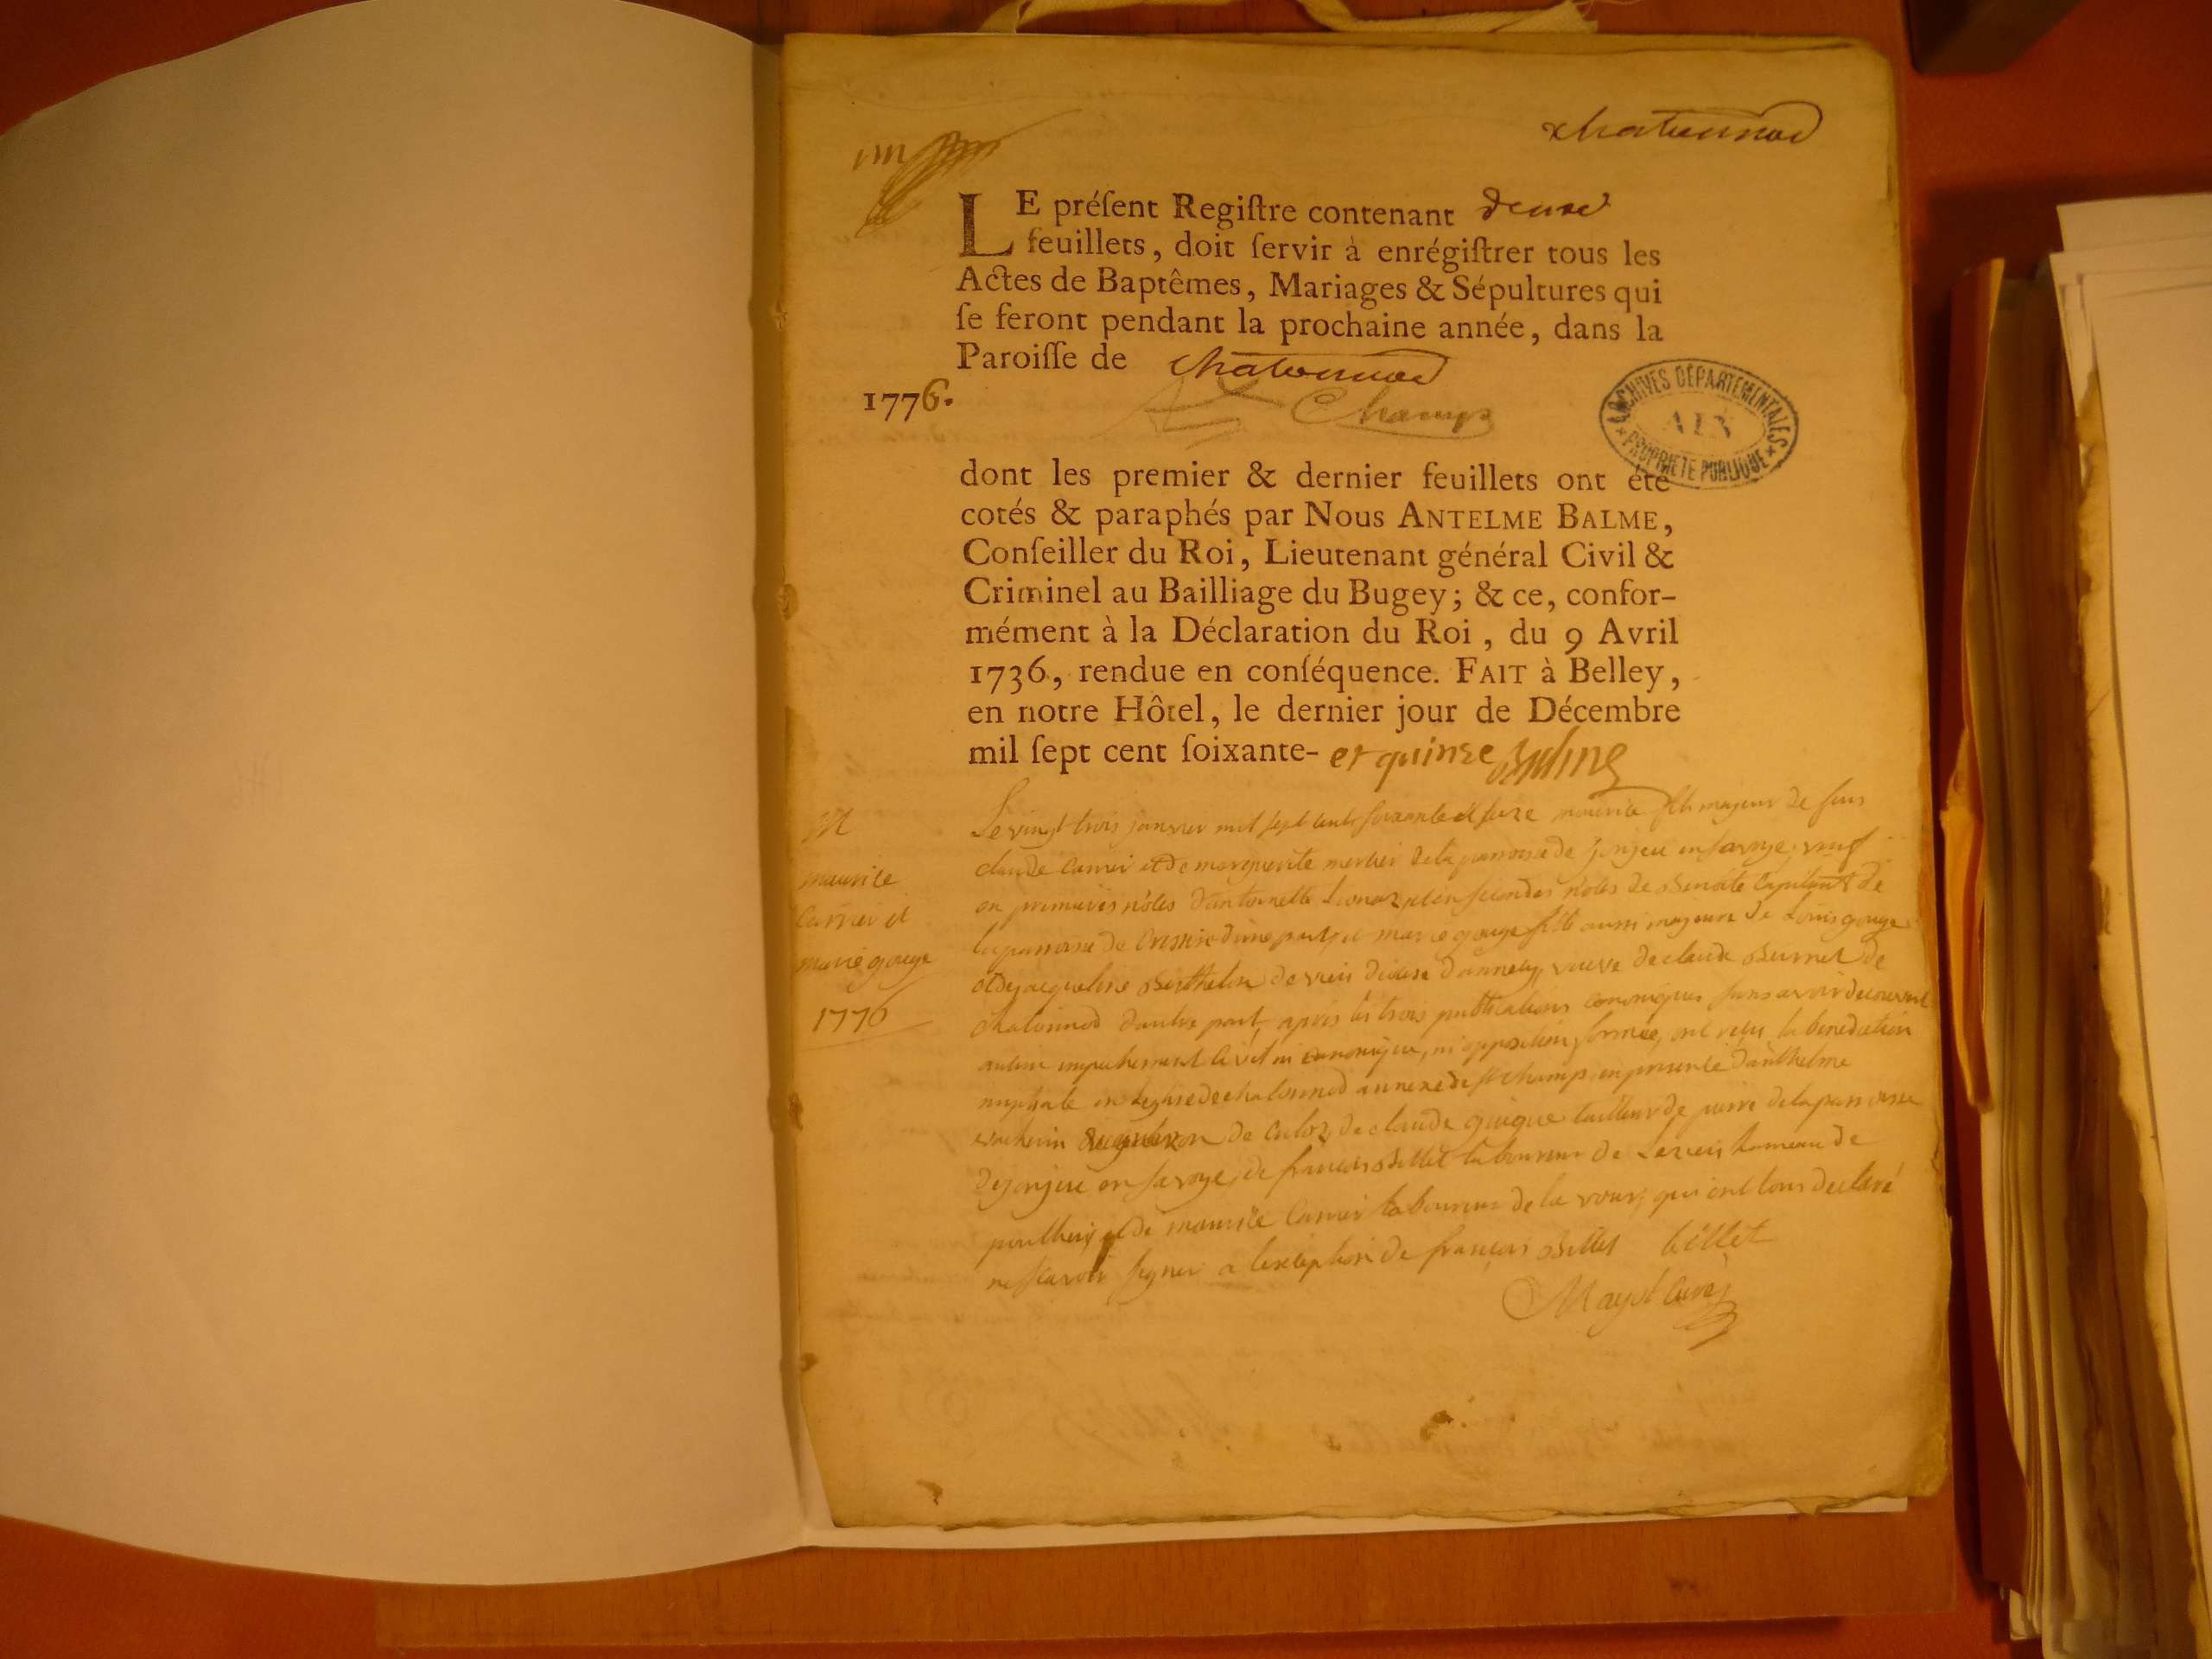 chatonnod
LE préſent Regiſtre contenant deux
feuillets, doit ſervir à enrégiſtrer tous les
Actes de Baptêmes, Mariages & Sépultures qui
ſe feront pendant la prochaine année, dans la
Paroiſſe de chatonnod
1776.
Champ
ARCHIVES DÉPARTEMENTALES
AIN
PROPRIÉTÉ PUBLIQUE
dont les premier & dernier feuillets ont été
cotés & paraphés par Nous ANTELME BALME,
Conſeiller du Roi, Lieutenant général Civil &
Criminel au Bailliage du Bugey; & ce, confor-
mément à la Déclaration du Roi, du 9 Avril
1736, rendue en conſéquence. FAIT à Belley,
en notre Hôtel, le dernier jour de Décembre
mil ſept cent ſoixante- et quinze Balme
M
maurice
Carrier et
marie gouge
1776
Le vingt trois janvier mil sept cents soixante et seize maurice fils majeur de feus
claude Carrier et de marguerite mercier de la paroisse de jonjeu en savoye, veuf
en premieres nôces d'antoinette et en secondes nôces de Benoite Capitant de
la paroisse de d'une part, et marie gouge fille aussi majeure de Louis gouge
et de jacqueline Berthelon de diocese d'annecy, veuve de claude Burnet de
chatonnod d'autre part, après les trois publications canoniques sans avoir decouvert
aucun empechement civil ni canonique, ni opposition formée, ont reçu la benediction
nuptiale en l'eglise de chatonnod annexe de st champ en presence d'anthelme
de culoz, de claude guigue tailleur de pierre de la paroisse
de jonjeu en savoye, de françois Billet laboureur de hameau de
et de maurice Carrier laboureur de la qui ont tous declaré
ne sçavoir signer a l'exception de françois Billet billet
Mayet Curé